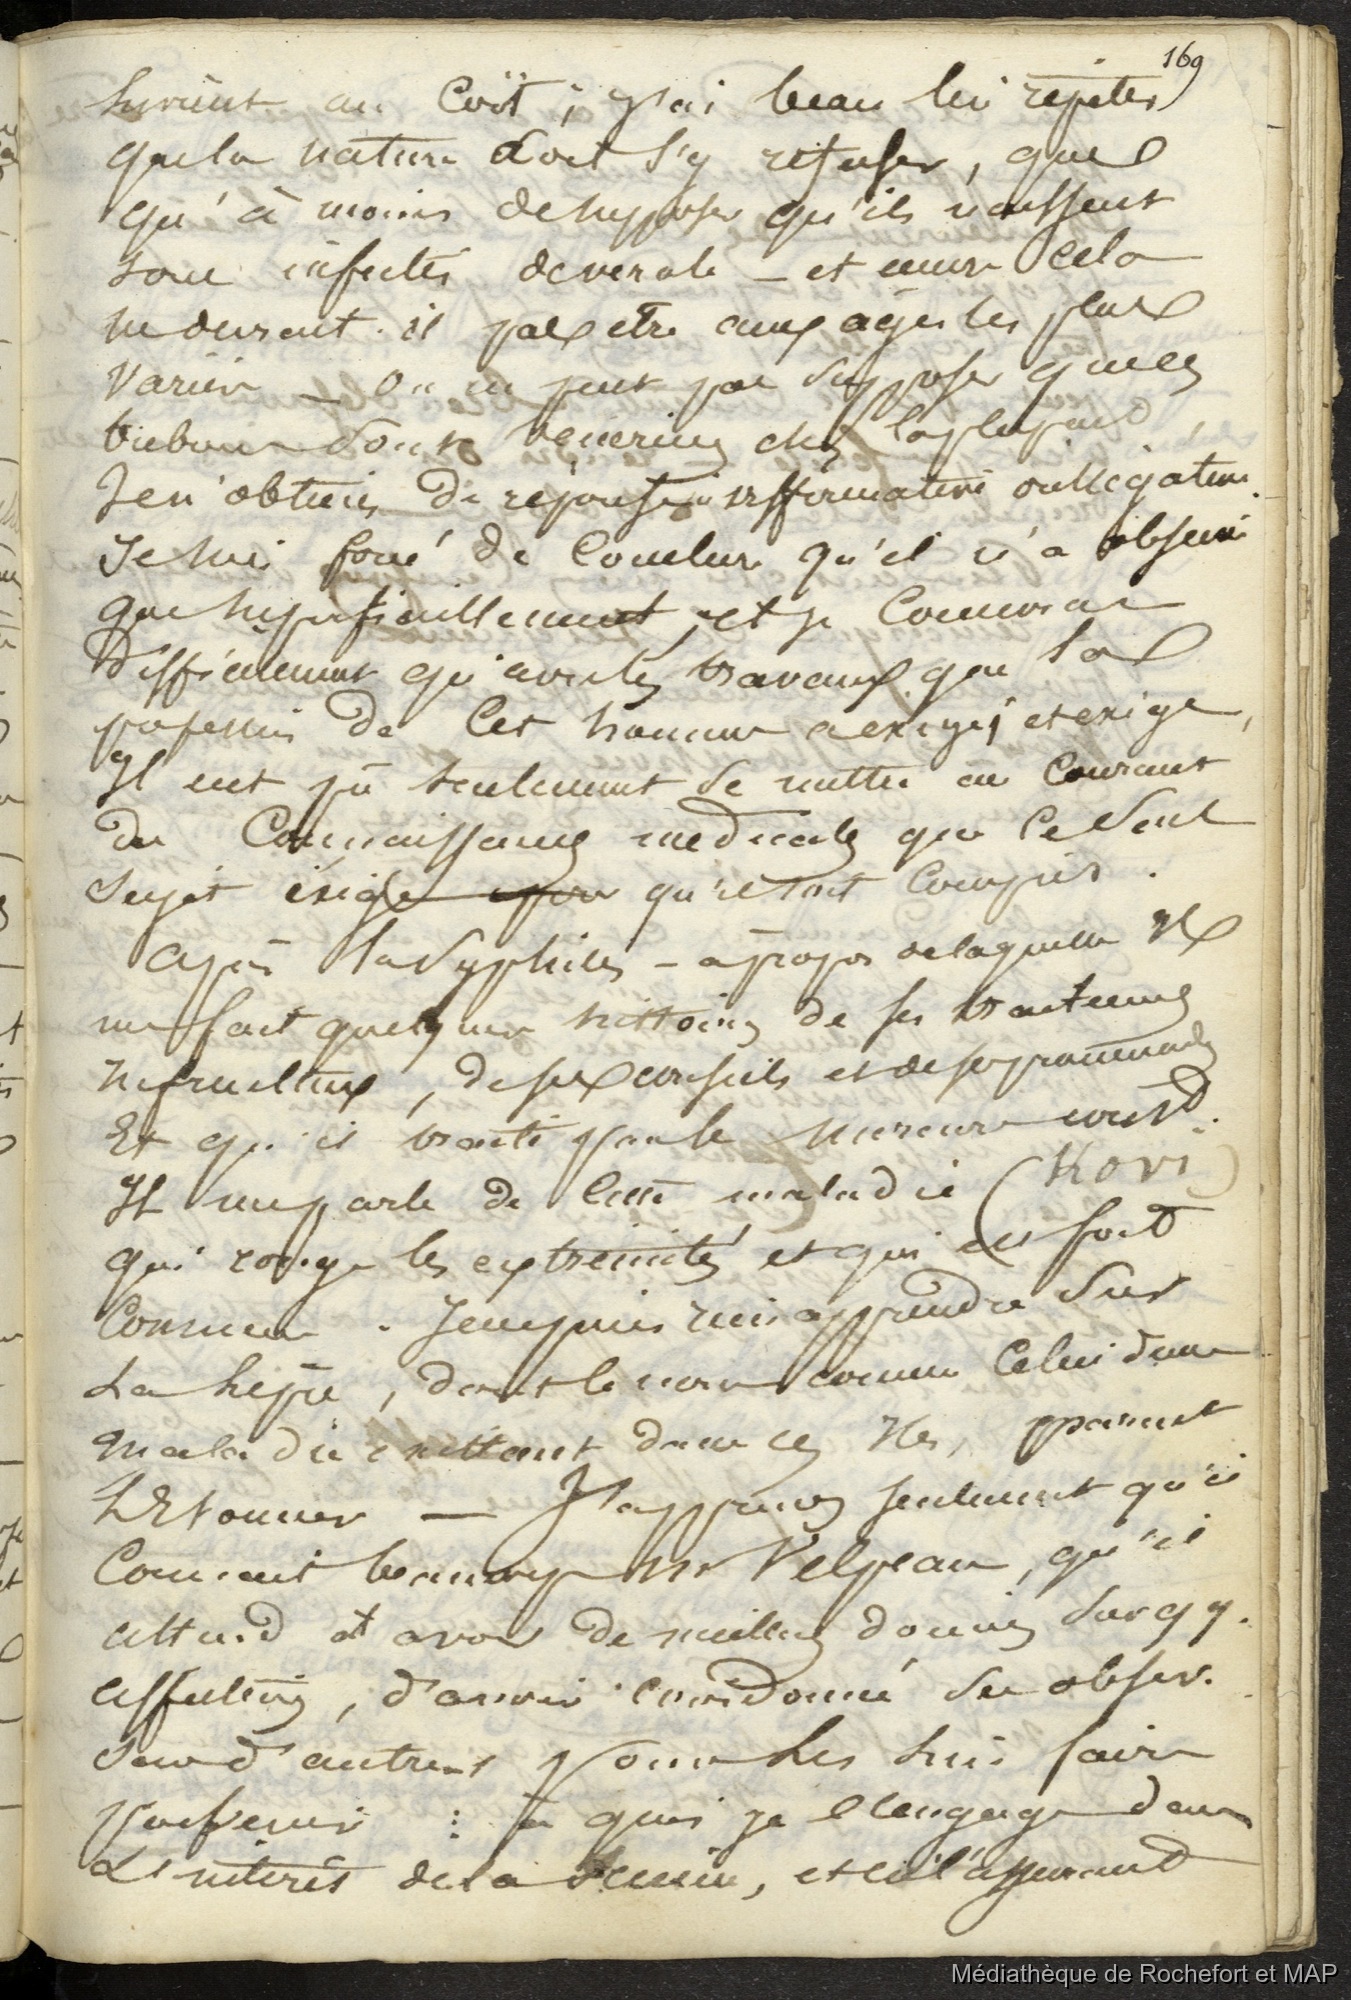 169
survient au Coït ; j'ai beau lui répéter
que la nature doit s'y refuser, que
qu'à moins de supposer qu'ils naissent
tous infectés de verole - et encore cela
ne devrait-il pas être aux âges les plus
variés - On ne peut pas supposer que ces
bubons sont vénériens chez la plupart,
Je n'obtiens de réponse ni affirmative ou négative.
Je suis forcé de Conclure qu'il n'a observé
que superficiellement, et je Concevrai
difficilement qu'avec les travaux que la
profession de Cet homme a exigé, et exige,
Il eut pû seulement se mettre au Courant
des Connaissances médicales que le seul
sujet exige pour qu'il soit Compris.
après la Syphilis - à propos de laquelle Il
me fait quelques histoires de ses traitemens
infructueux, de ses conseils et de ses
Et qu'il traite par le mercure
Il me parle de cette maladie (Kovi)
qui ronge les extrémités et qui est fort
Commune. Je ne puis rien apprendre sur
La lèpre, dont le nom comme Celui d'une
maladie existant dans ces Iles, parait
L'Etonner — J'apprends seulement qu'il
Connait beaucoup Mr Velpeau, qu'il
attend d'avoir de meilleures données sur qq.
affections, d'avoir coordonné ses observ.
sur d'autres pour les lui faire
parvenir : à quoi je l'engage dans
L'intérêt de la Science, et en l'assurant
Médiathèque de Rochefort et MAP